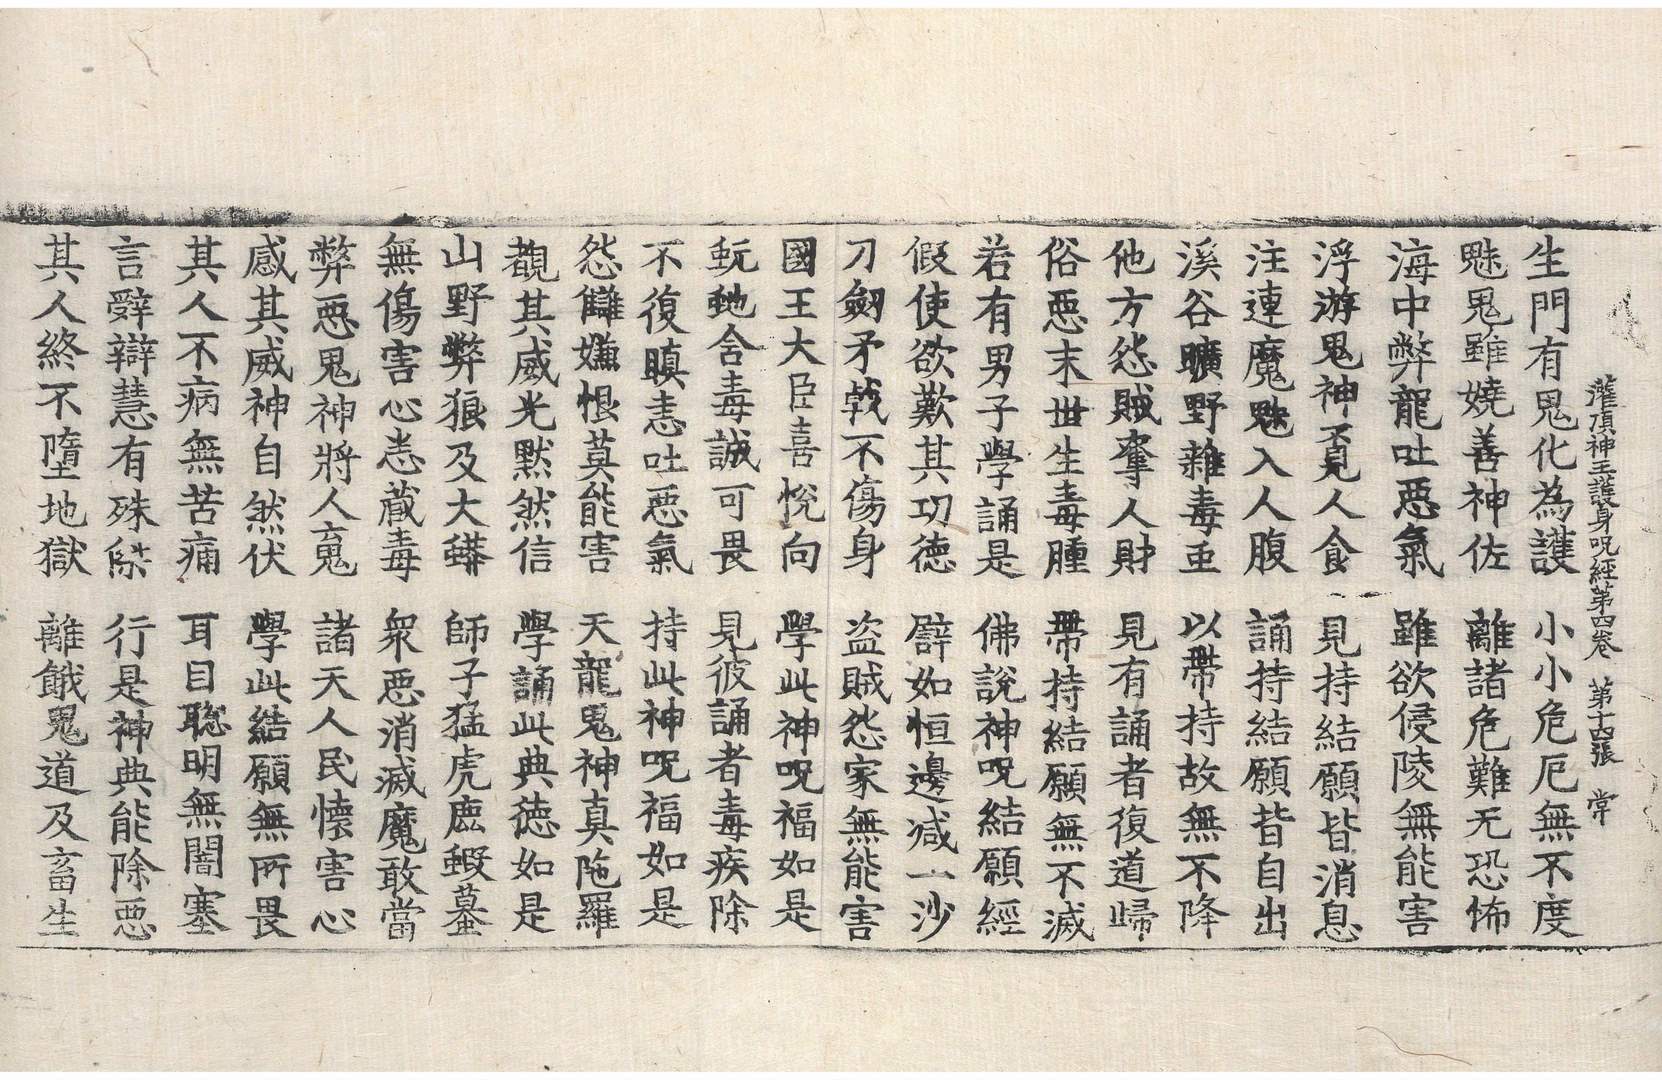 灌頂神王護身呪經第四卷 第十四張 常
生門有鬼化為護 小小危厄無不度
魅鬼雖嬈善神佐 離諸危難无恐怖
海中弊龍吐惡氣 雖欲侵陵無能害
浮游鬼神覔人食 見持結願皆消息
注連魔魅入人腹 誦持結願皆自出
溪谷曠野雜毒虫 以帶持故無不降
他方怨賊奪人財 見有誦者復道歸
俗惡末世生毒腫 帶持結願無不滅
若有男子學誦是 佛說神呪結願經
假使欲歎其功德 譬如恒邊減一沙
刀劒矛戟不傷身 盜賊怨家無能害
國王大臣喜悅向 學此神呪福如是
蚖虵含毒誠可畏 見彼誦者毒疾除
不復瞋恚吐惡氣 持此神呪福如是
怨讎嫌恨莫能害 天龍鬼神真陁羅
覩其威光默然信 學誦此典德如是
山野弊狼及大蟒 師子猛虎鹿蝦蟇
無傷害心恚蔵毒 衆惡消滅魔敢當
弊惡鬼神將人鬼 諸天人民懷害心
感其威神自然伏 學此結願無所畏
其人不病無苦痛 耳目聦明無闇塞
言辭辯慧有殊 行是神典能除惡
其人終不墮地獄 離餓鬼道及畜生